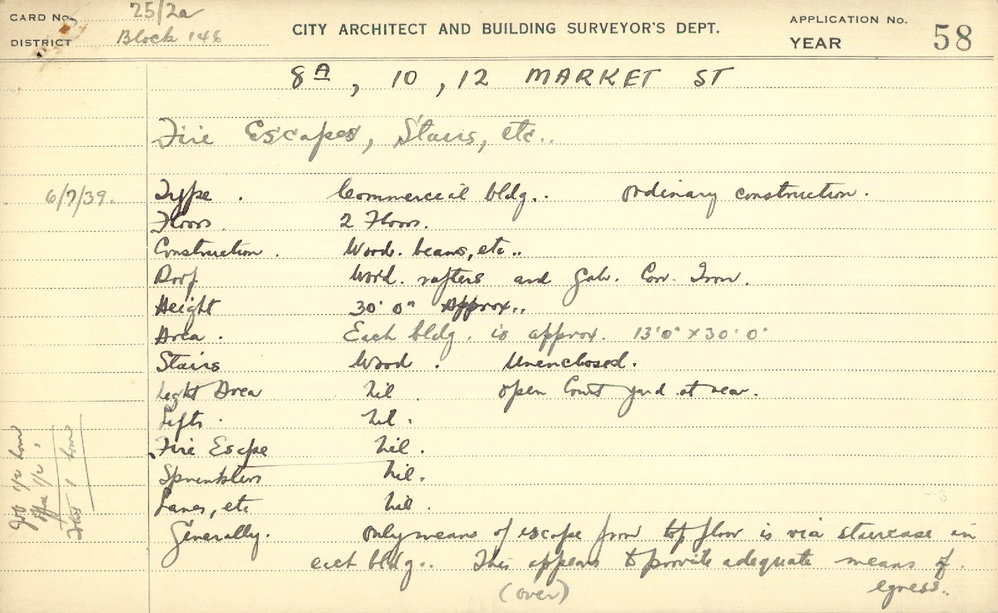 CARD No. 25/2a
DISTRICT Block 148
CITY ARCHITECT AND BUILDING SURVEYOR'S DEPT.
APPLICATION No.
YEAR 58
8A, 10, 12 MARKET ST
Fire Escapes, Stairs, etc..
6/7/39. Type . Commercial bldg.. Ordinary construction.
Floors. 2 Floors.
Construction. Wood. beams, etc..
Roof Word. rafters and Galv. Corr. Iron.
Height 30' 0" Approx..
Area. Each bldg. is approx. 13'0" x 30'0"
Stairs Wood. Unenclosed.
Light Area nil open Court yard at rear.
Lifts. nil.
Fire Escape nil.
Sprinklers nil.
Lanes, etc nil.
Generally. only means of escape from top floor is via staircase in
each bldg.. This appears to provide adequate means of
egress.
(over)
Job 1/2 hour
Office 1/2 "
Total 1 hour